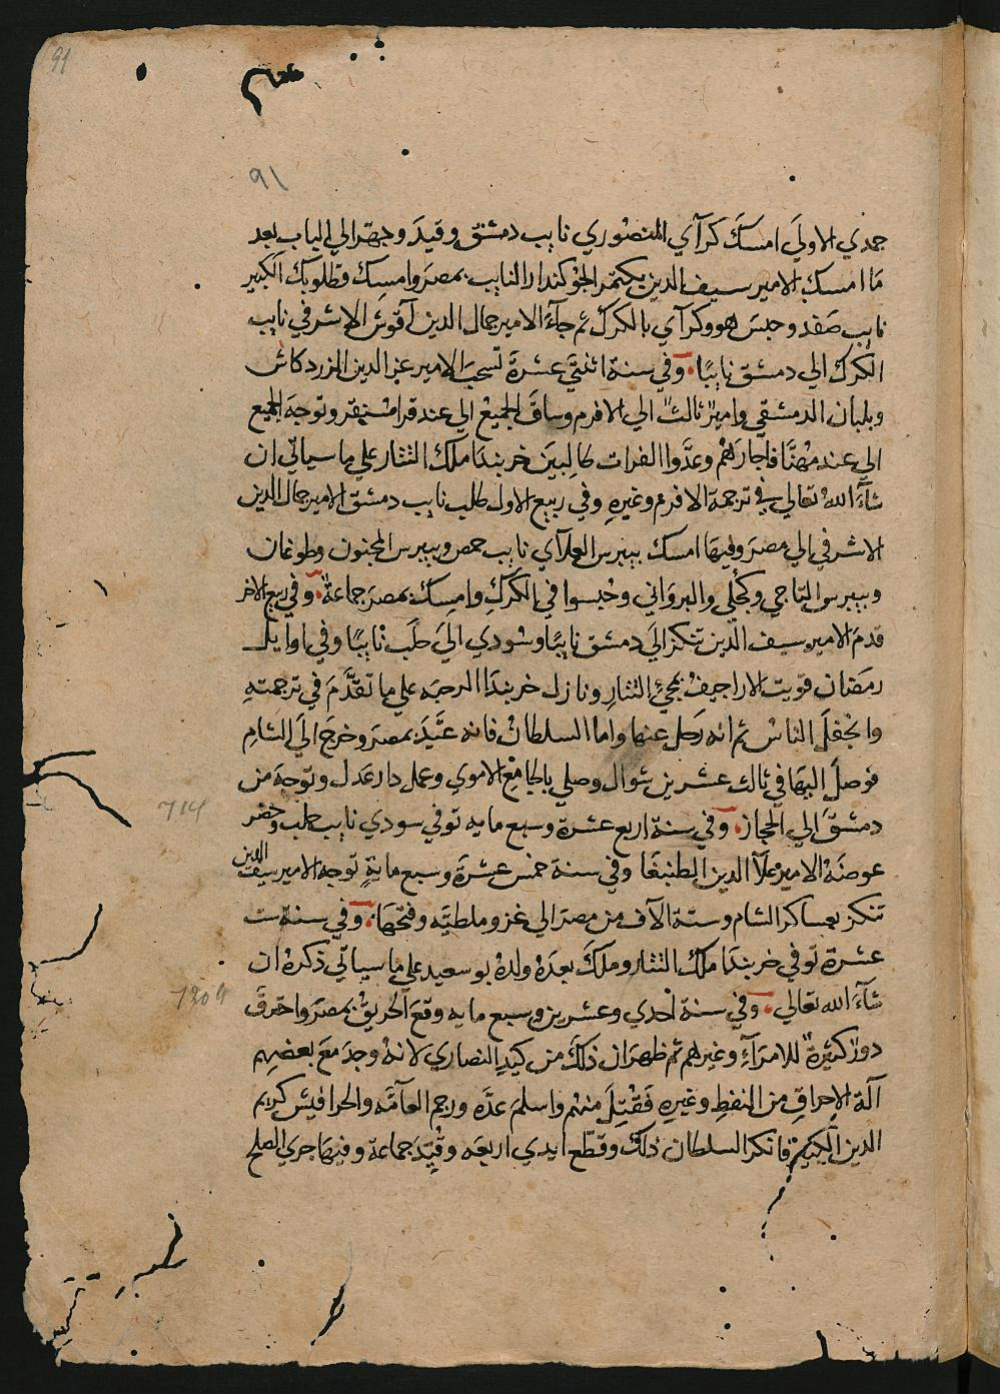 91
٩١
جمدي الاولَي امسَكَ كرآي المنصُوري نايب دمشق وقيدَ وجهّز الي الباب بعد
مَا امسك الامير سيف الدين بكتمر الجوكندار النايب بمصرَ وامسِك قطلوبك الكبير
نايب صَفد وحبسَ هو وكرآي بالكرك ثم جآءَ الامير جمال الدين آقوش الاشرفي نايب
الكرك الي دمشق نايبًا. وفي سنة اثنتي عشرةَ تسحبَ الامير عز الدين الزردكاش
وبلبان الدمشقي وامير ثالث الي الافرم وساقَ الجميعُ الي عند قراسُنقر وتوجهَ الجميع
الي عند مُهنَّا فاجارَهُم وعدَّوا الفرات طالِبينَ خربندَا ملك التتار علي ما سياتي ان
شآءَ اللهُ تعالي في ترجمة الافرم وغيرهِ وفي ربيع الاول طلب نايب دمشق الامير جمال الدين
الاشرفي الي مصرَ وفيهَا امسك بيبرس العلآي نايب حمص وبيبرس المجنون وطوغان
وبيبرس التاجي وكجُلي والبروَاني وحُبسوا في الكرَكِ وامسِك بمصرَ جماعةٌ. وفي ربيع الاخر
قدمَ الامير سيف الدين تنكز اليَ دمشق نايبًا وسُودي اليَ حلَبَ نايبًا وفي اوايل
رمضَان قويت الاراجيفُ بمجيْ التتارِ ونازل خربندَا الرحبَه علي ما تقدَّمَ في ترجمتهِ
وانجفلَ الناسُ ثم انه رَحل عنها وامَا السلطانُ فانه عيَّدَ بمصرَ وخرجَ اليَ الشامِ
فوصلَ اليهَا في ثالث عشرين شوال وصلي بالجامِعِ الاموي وعمل دار عَدل وتوَجهَ من
دمشقَ الي الحجاز. وفي سنة اربع عشرة وسبع مايه توفي سودي نايب حلب وحضر
714
عوضَهُ الامير علآ الدين الطنبغَا وفي سنة خمس عشرَة وسبع مايةٍ توجه الامير سيف الدين
تنكز بعساكر الشام وستة الآف من مصرَ الي غزو ملطيَه وفتحهَا. وفي سنة ست
عشرة توفي خربندَا ملك التتار وملكَ بعدَهُ ولدهُ بو سعيد علي ما سياتي ذكرهُ ان
شآءَ الله تعالي. وفي سنة احدي وعشرين وسبع مايه وقعَ الحريقُ بمصرَ واحترقَ
دورٌ كثيرةٌ للامرَآءِ وغيرهم ثم ظهرَ ان ذلكَ من كيدِ النصاري لانهُ وجدَ معَ بعضهم
آلة الاحراقِ من النفطِ وغيرهِ فَقُتِلَ منهُم واسلمَ عدَّه ورجم العآمَّه والحرافيش كريم
الدين الكبير فانكر السلطان ذلك وقطّع ايدي اربعَه وقُيِّدَ جماعةٌ وفيهَا جري الصلح